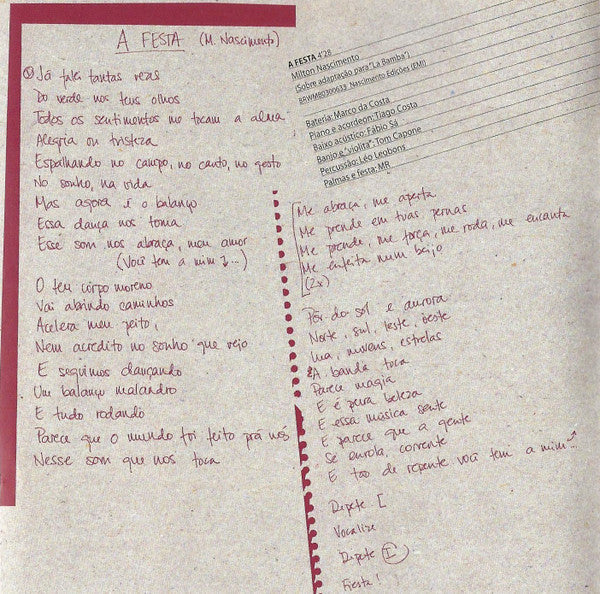 A FESTA (M. Nascimento)
I Já falei tantas vezes
Do verde nos teus olhos
Todos os sentimentos me tocam a alma
Alegria ou tristeza
Espalhando no campo, no canto, no gesto
No sonho, na vida
Mas agora é o balanço
Essa dança nos toma
Esse som nos abraça, meu amor
(Você tem a mim ...)
O teu corpo moreno
Vai abrindo caminhos
Acelera meu peito,
Nem acredito no sonho que vejo
E seguimos dançando
Um balanço malandro
E tudo rodando
Parece que o mundo foi feito prá nós
Nesse som que nos toca
A FESTA 4'28
Milton Nascimento
(Sobre adaptação para "La Bamba")
BRWMB0300633 Nascimento Edições (EMI)
Bateria: Marco da Costa
Piano e acordeon: Tiago Costa
Baixo acústico: Fábio Sá
Banjo e "violita": Tom Capone
Percussão: Léo Leobons
Palmas e festa: MR
[Me abraça, me aperta
Me prende em tuas pernas
Me prende, me força, me roda, me encanta
Me enfeita num beijo
(2x)
Pôr do sol e aurora
Norte, sul, leste, oeste
lua, nuvens, estrelas
A banda toca
Parece magia
E é pura beleza
E essa música sente
E parece que a gente
Se enrola, corrente
E tão de repente você tem a mim...
Repete [
Vocalize
Repete I
Fiesta!